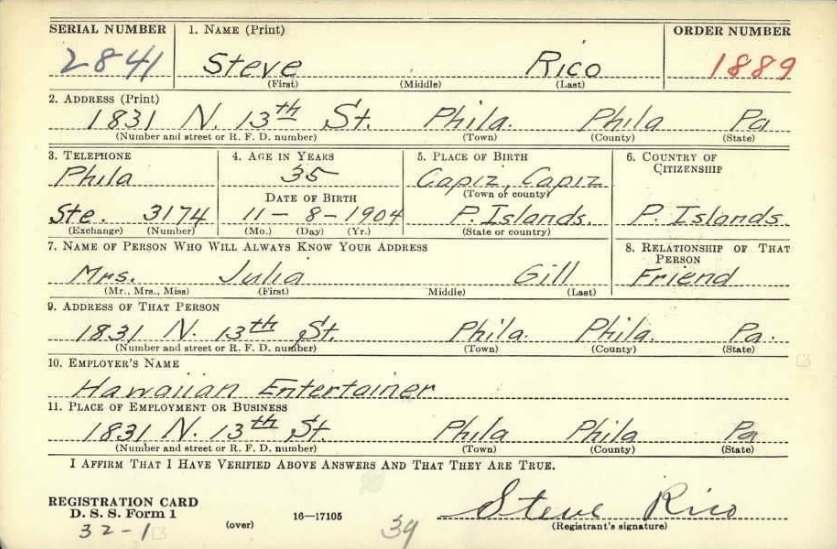 SERIAL NUMBER 1. NAME (Print) ORDER NUMBER
2841 Steve Rico 1889
(First) (Middle) (Last)
2. ADDRESS (Print)
1831 N. 13th St. Phila. Phila Pa
(Number and street or R. F. D. number) (Town) (County) (State)
3. TELEPHONE 4. AGE IN YEARS 5. PLACE OF BIRTH 6. COUNTRY OF CITIZENSHIP
Phila 35 Capiz, Capiz
(Town or county)
DATE OF BIRTH
Ste. 3174 11-8-1904 P. Islands. P. Islands.
(Exchange) (Number) (Mo.) (Day) (Yr.) (State or country)
7. NAME OF PERSON WHO WILL ALWAYS KNOW YOUR ADDRESS 8. RELATIONSHIP OF THAT PERSON
Mrs. Julia Gill Friend
(Mr., Mrs., Miss) (First) Middle) (Last)
9. ADDRESS OF THAT PERSON
1831 N. 13th St. Phila. Phila. Pa.
(Number and street or R. F. D. number) (Town) (County) (State)
10. EMPLOYER'S NAME
Hawaiian Entertainer
11. PLACE OF EMPLOYMENT OR BUSINESS
1831 N. 13th St Phila Phila Pa
(Number and street or R. F. D. number) (Town) (County) (State)
I AFFIRM THAT I HAVE VERIFIED ABOVE ANSWERS AND THAT THEY ARE TRUE.
REGISTRATION CARD
D. S. S. Form 1 16—17105 Steve Rico
32-1 (over) 39 (Registrant's signature)